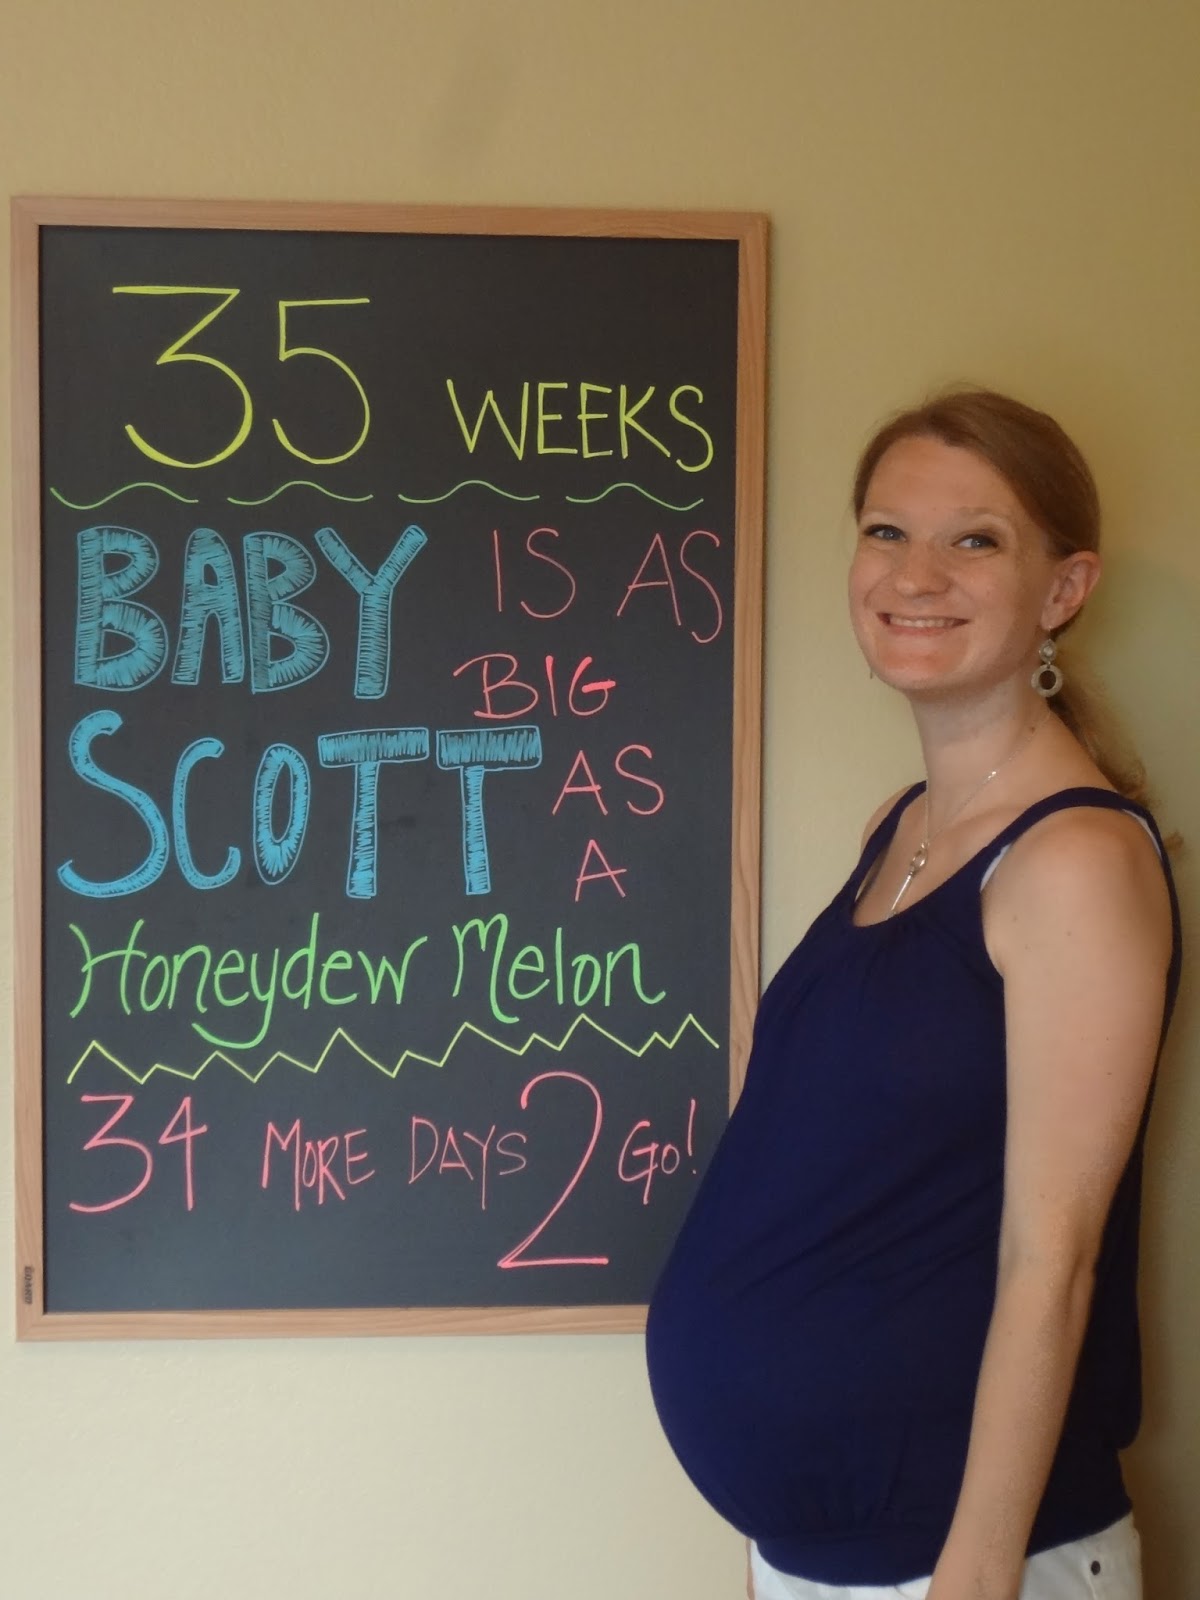 35 WEEKS
BABY IS AS
BIG
SCOTT AS
A
Honeydew Melon
34 MORE DAYS 2 GO!